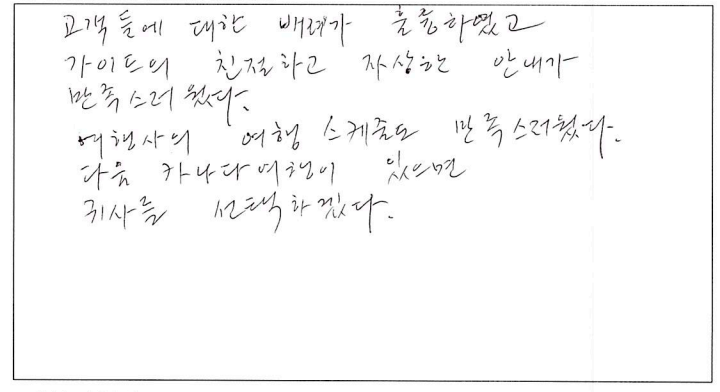 고객들에 대한 배려가 훌륭하였고
가이드의 친절하고 자상한 안내가
만족스러웠다.
여행사의 여행 스케줄도 만족스러웠다.
다음 카나다여행이 있으면
귀사를 선택하겠다.